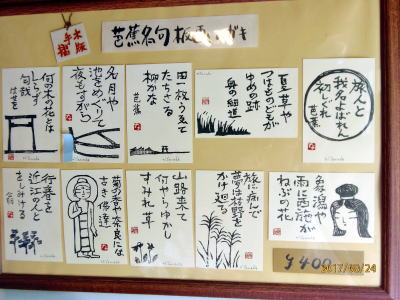 木版
手摺
芭蕉名句板画ハガキ
旅人と
我名よばれん
初しぐれ
芭蕉
夏草や
つはものどもが
ゆめの跡
奥の細道
田一枚うゑて
たちさる
柳かな
芭蕉
名月や
池をめぐりて
夜もすがら
何の木の花とは
しらず
匂哉
はせを
象潟や
雨に西施が
ねぶの花
旅に病んで
夢は枯野を
かけ廻る
山路来て
何やらゆかし
すみれ草
菊の香や奈良には
古き佛達
行春を
近江の人と
をしみける
¥400
2017/03/24